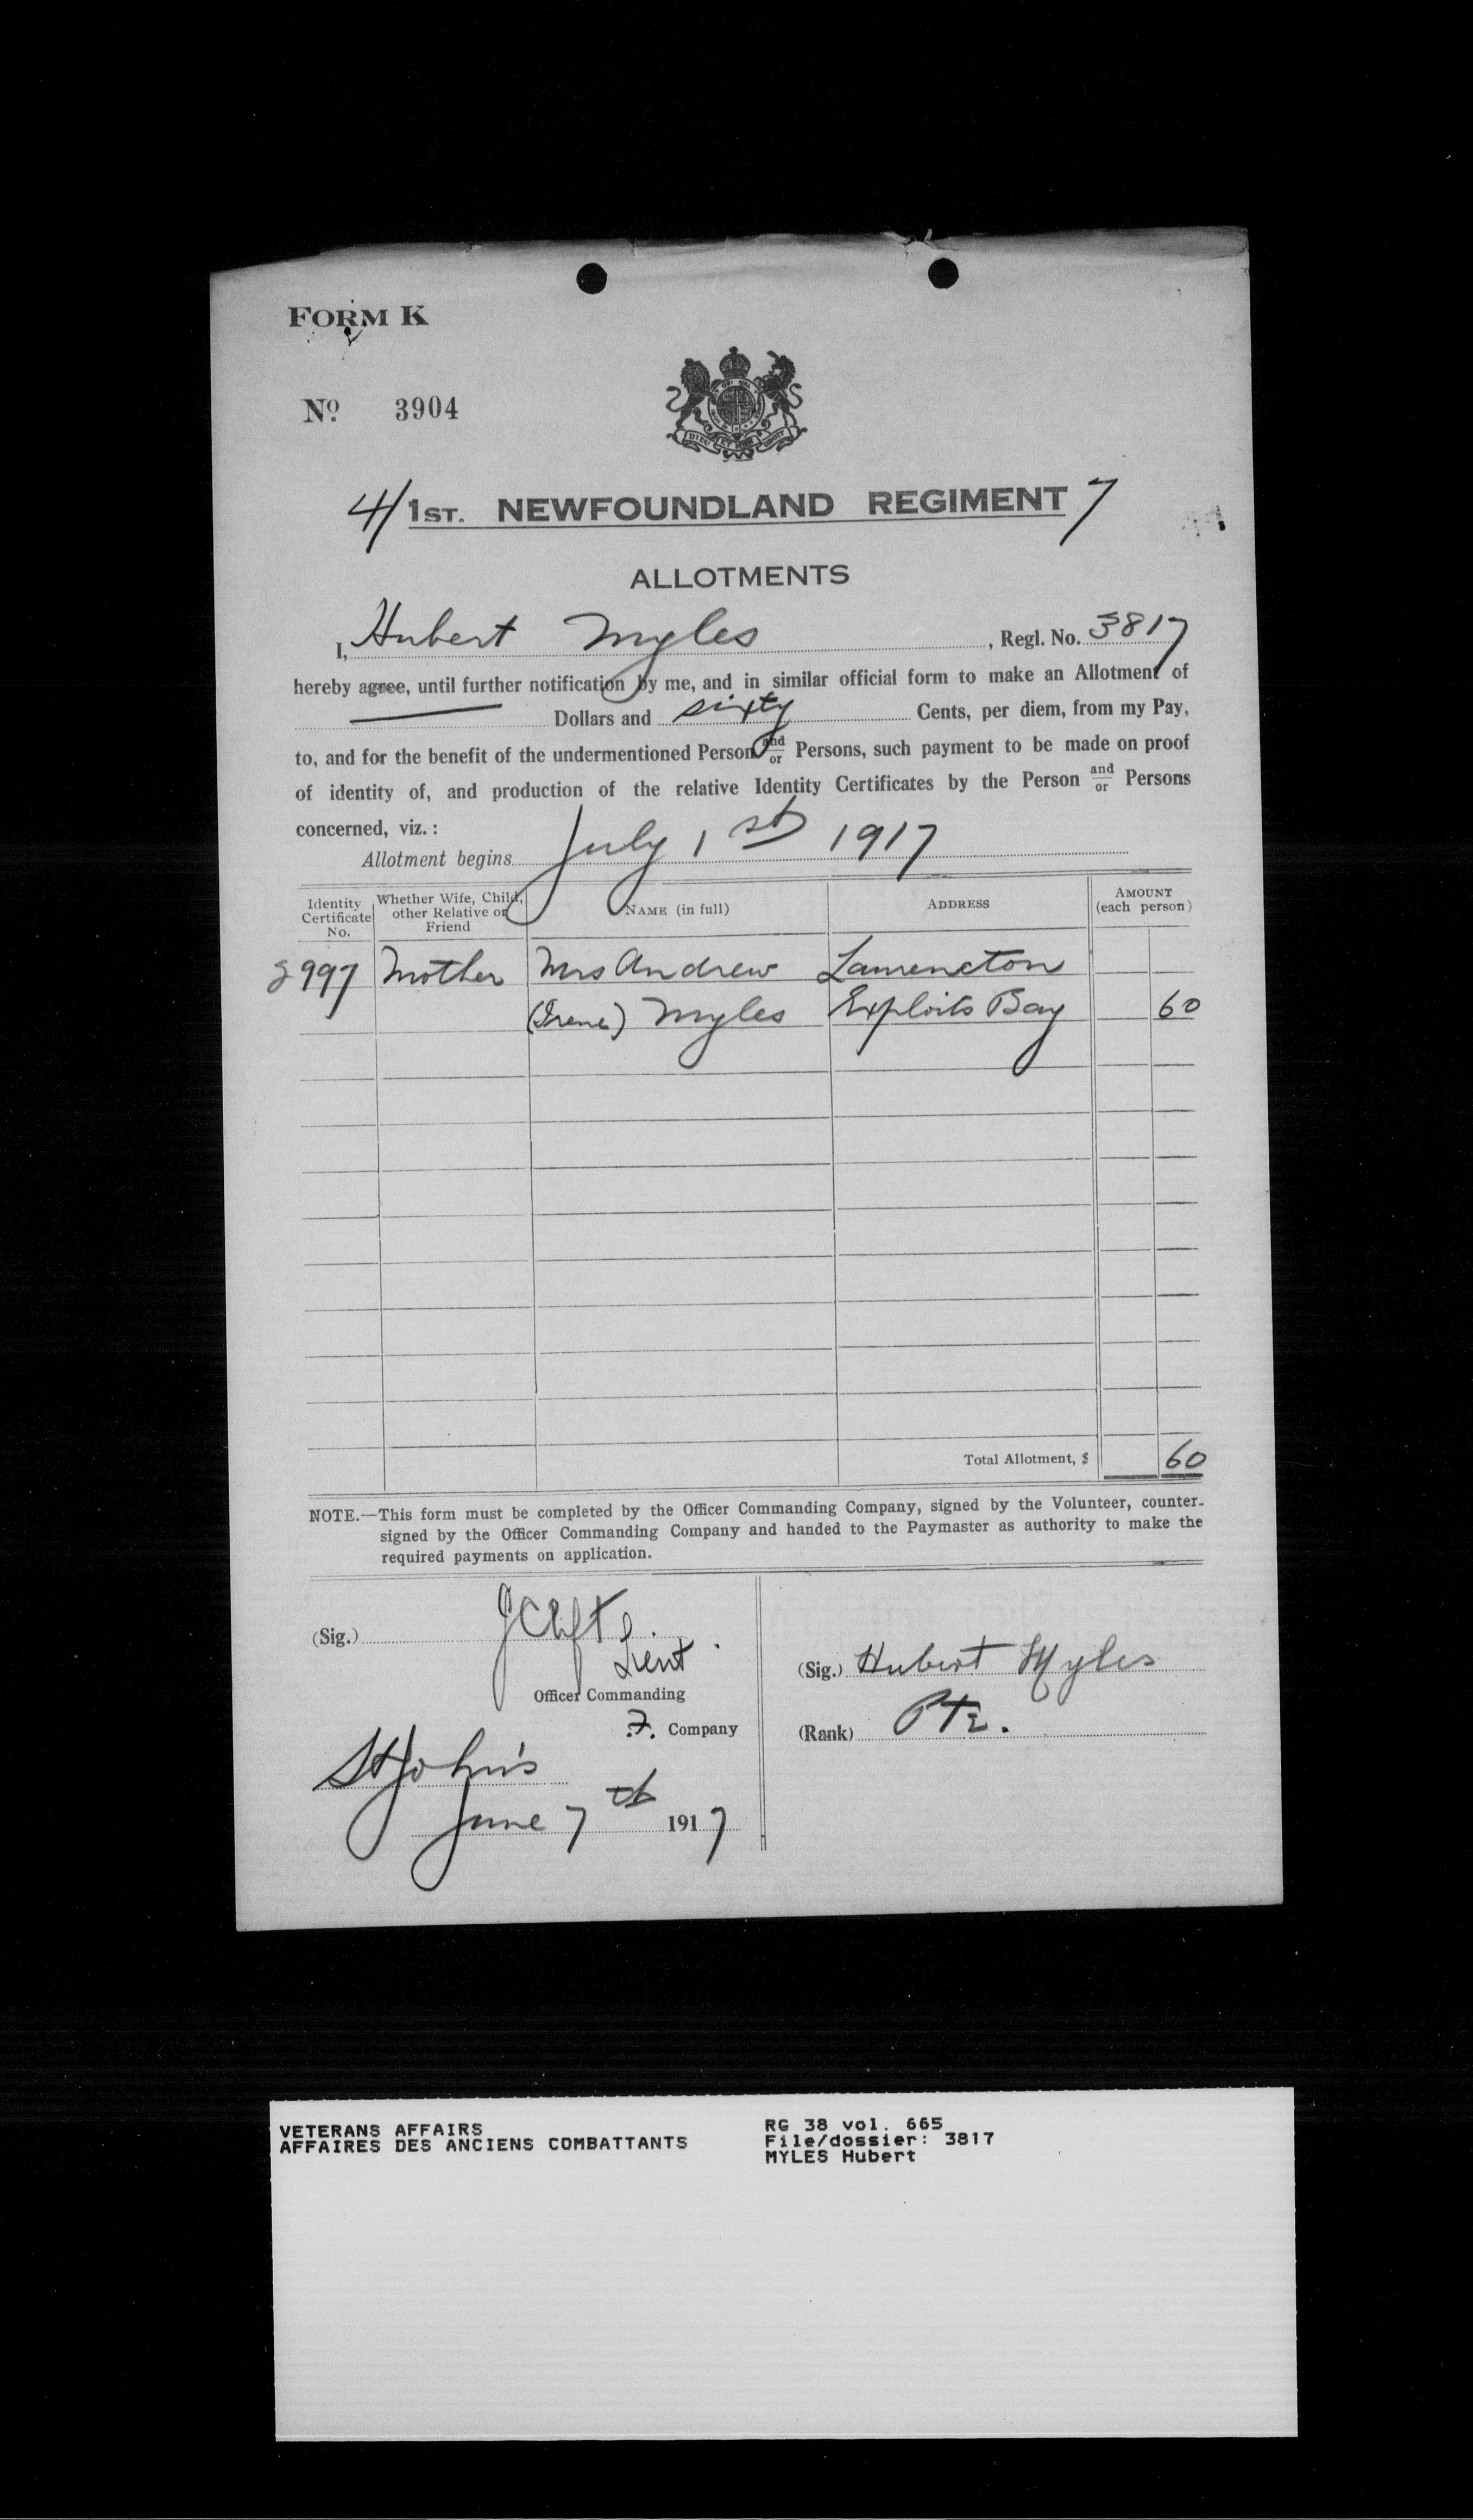 FORM K
Nº 3904
4/ 1ST. NEWFOUNDLAND REGIMENT 7
ALLOTMENTS
I, Hubert Myles, Regl. No. 3817
hereby agree, until further notification by me, and in similar official form to make an Allotment of
Dollars and sixty Cents, per diem, from my Pay,
to, and for the benefit of the undermentioned Person and/or Persons, such payment to be made on proof
of identity of, and production of the relative Identity Certificates by the Person and/or Persons
concerned, viz. :
Allotment begins July 1st 1917
Identity Certificate No. Whether Wife, Child, other Relative or Friend NAME (in full) ADDRESS AMOUNT (each person)
997 Mother Mrs Andrew Laurenceton
(Irene) Myles Exploits Bay 60
Total Allotment, $ 60
NOTE.—This form must be completed by the Officer Commanding Company, signed by the Volunteer, counter-
signed by the Officer Commanding Company and handed to the Paymaster as authority to make the
required payments on application.
(Sig.) J Clift
Lieut
Officer Commanding
F. Company
St John's
June 7th 1917
(Sig.) Hubert Myles
(Rank) Pte.
VETERANS AFFAIRS
AFFAIRES DES ANCIENS COMBATTANTS
RG 38 vol. 665
File/dossier: 3817
MYLES Hubert